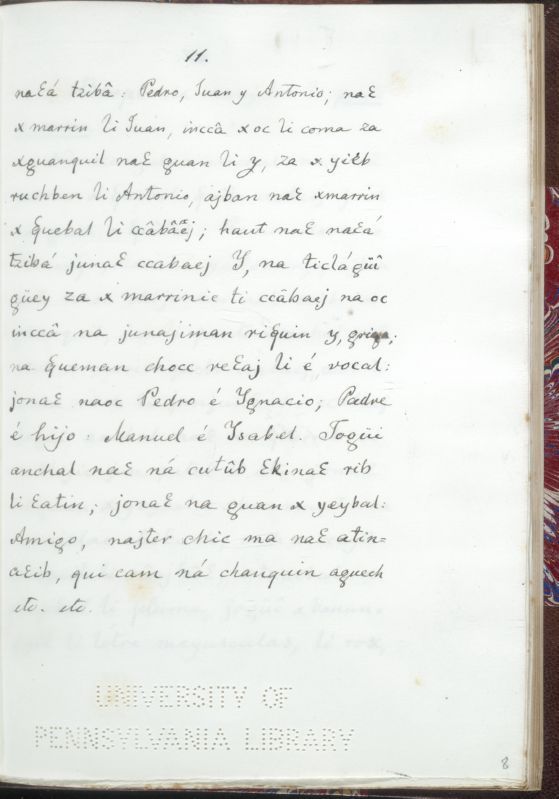 11.
naɛá tzibâ: Pedro, Juan y Antonio; naɛ
x marrin li Juan, inccâ x oc li coma za
xguanquil naɛ guan li y, za x yiɛb
ruchben li Antonio, ajban naɛ xmarrin
x quebal li ccâbâɛj; haut naɛ naɛá
tzibá junaɛ ccabaej Y, na ticlágüî
güey za x marrinic ti ccâbaej na oc
inccâ na junajiman riquin y, griga;
na queman chocc reɛaj li é, vocal:
jonaɛ naoc Pedro é Ygnacio; Padre
é hijo: Manuel é Ysabel. Togüi
anchal naɛ ná cutûb ɛkinaɛ rib
li ɛatin; jonaɛ na guan x yeybal:
Amigo, najter chic ma naɛ atin=
aɛib, qui cam ná chanquin aguech
etc. etc.
UNIVERSITY OF
PENNSYLVANIA LIBRARY
8